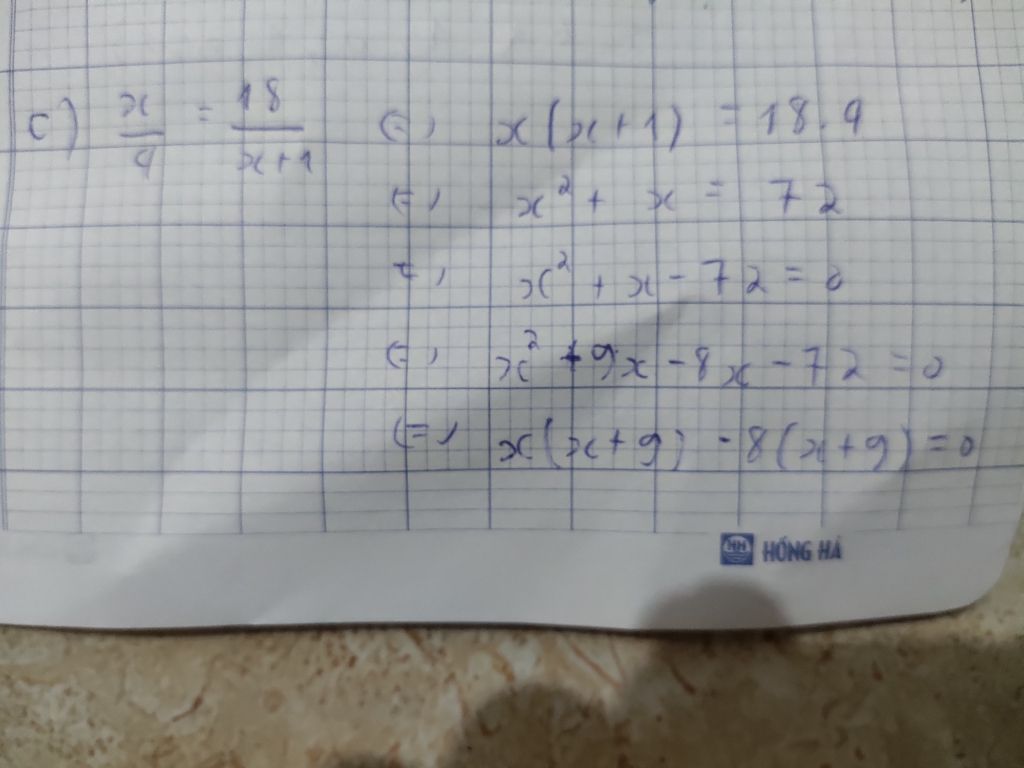 c) x/4 = 18/(x+1) (=) x(x+1) = 18.4
(=) x² + x = 72
(=) x² + x - 72 = 0
(=) x² + 9x - 8x - 72 = 0
(=) x(x+9) - 8(x+9) = 0
HH HỒNG HÀ